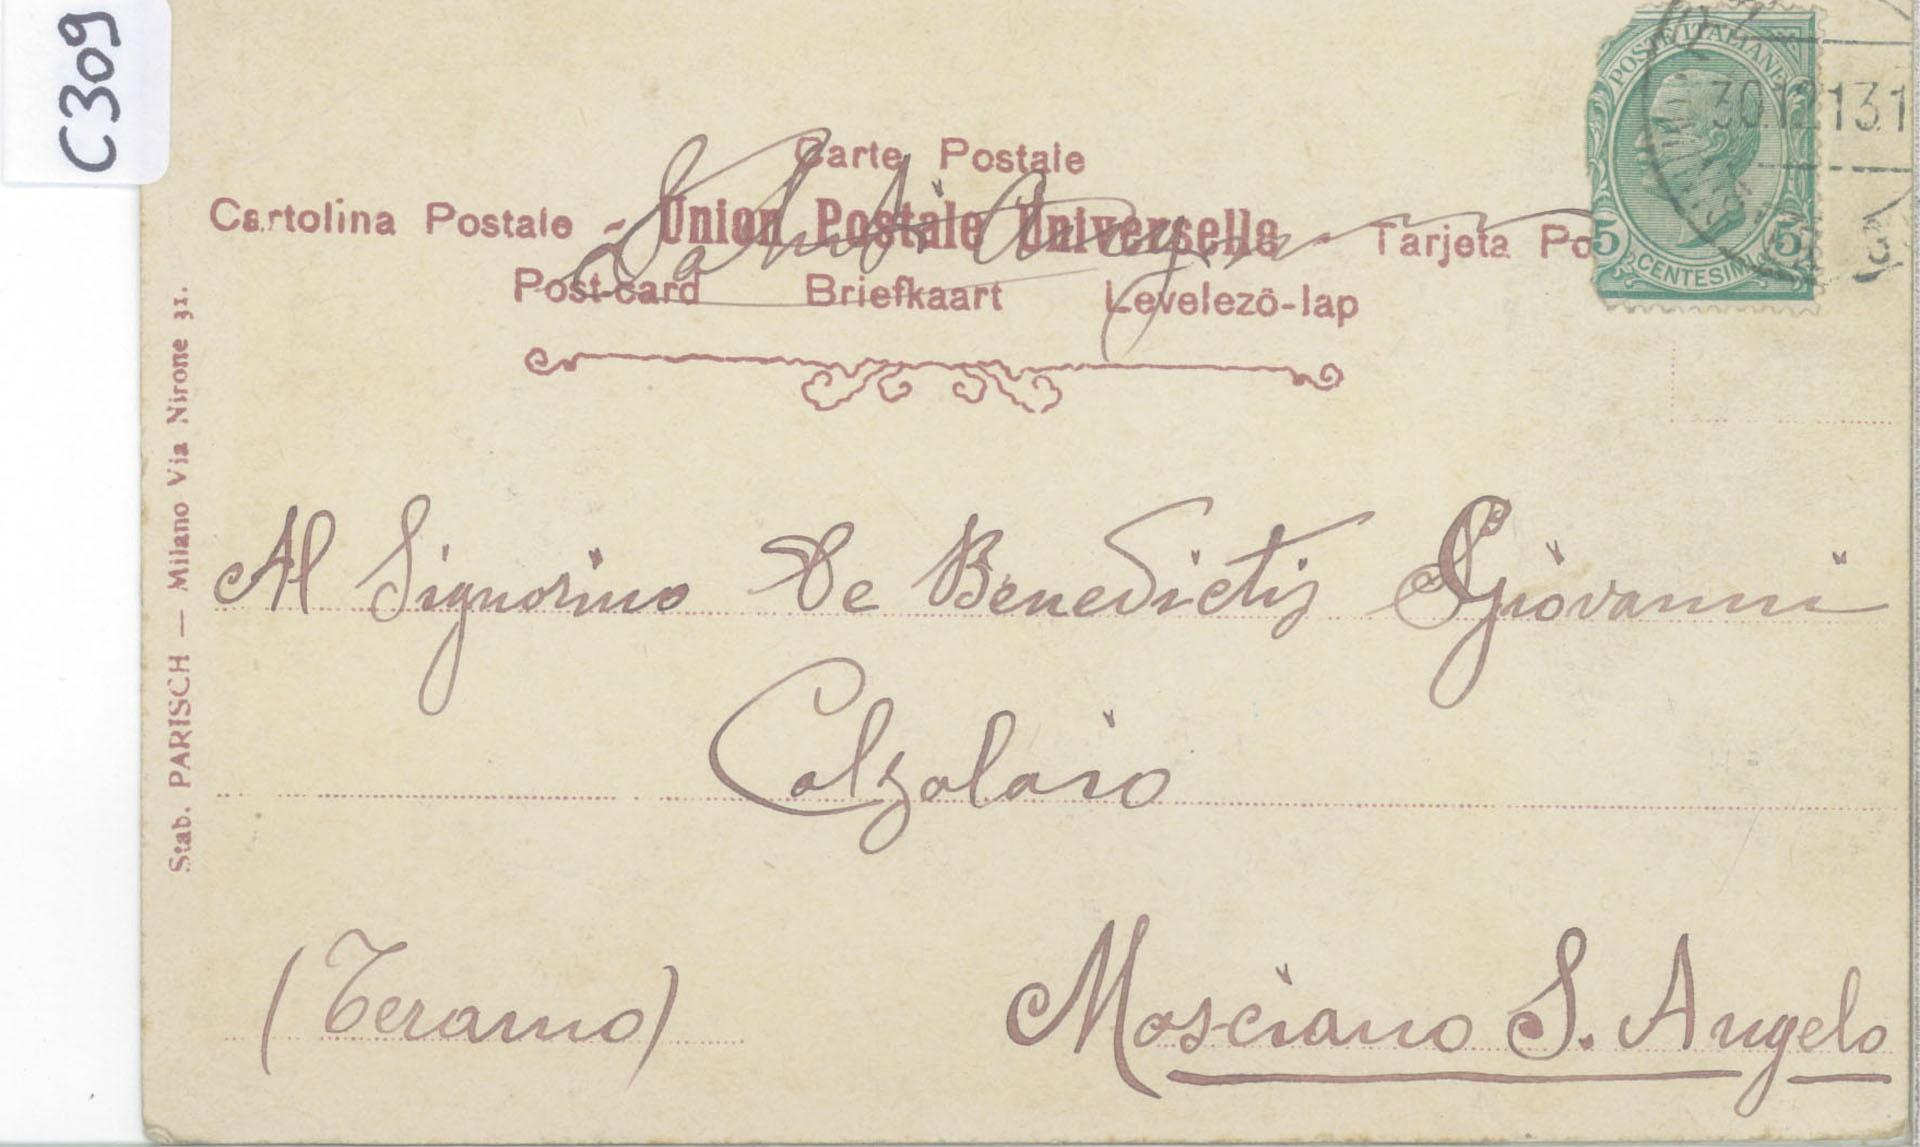 C309
Carte Postale
Cartolina Postale - Union Postale Universelle - Tarjeta Po
Post-card Briefkaart Levelezö-lap
POSTE ITALIANE
30.12.13.1
5 5
CENTESIMI
Stab. PARISCH — Milano Via Nirone 31.
Al Signorino De Benedictis Giovanni
Calzolaio
(Teramo) Mosciano S. Angelo